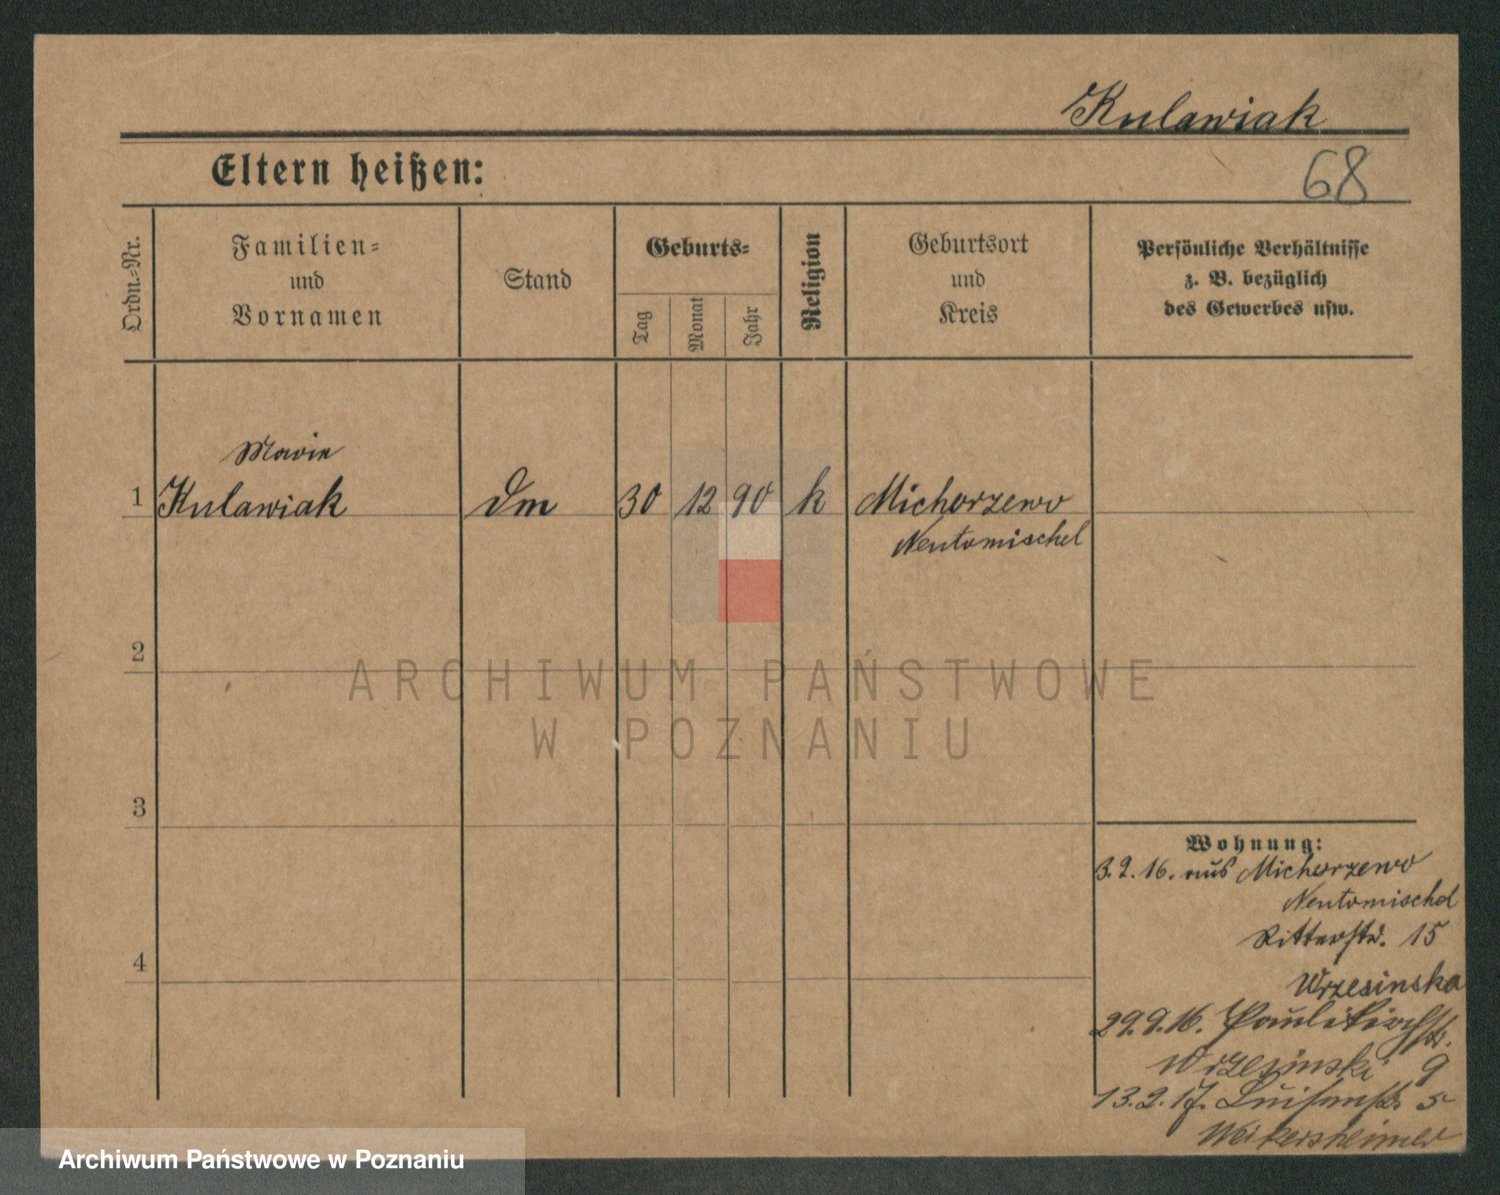 Kulawiak
Eltern heißen:
68
Ordn.-Nr.
Familien-
und
Vornamen
Stand
Geburts-
Tag
Monat
Jahr
Religion
Geburtsort
und
Kreis
Persönliche Verhältnisse
z. B. bezüglich
des Gewerbes usw.
Marie
1 Kulawiak Dm 30 12 90 k Michorzewo
Neutomischel
2
ARCHIWUM PAŃSTWOWE
W POZNANIU
3
Wohnung:
3.2.16. aus Michorzewo
Neutomischel
Ritterstr. 15
4
Wrzesinska
29.9.16. Paulikirchstr.
Wrzesinski 9
13.2.17. Luisenstr. 5
Weikersheimer
Archiwum Państwowe w Poznaniu